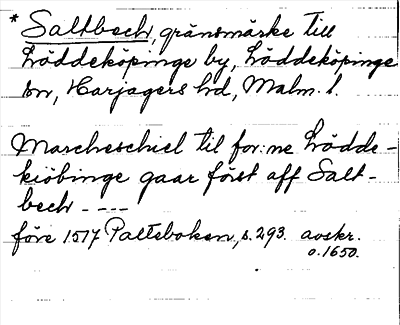 * Saltbech, gränsmärke till
Löddeköpinge by, Löddeköpinge
sn, Harjagers hd, Malm. l.
Marcheschiel til for:ne Lödde-
kiöbinge gaar först aff Salt-
bech - - - -
före 1517 Palteboken, s. 293. avskr.
o. 1650.